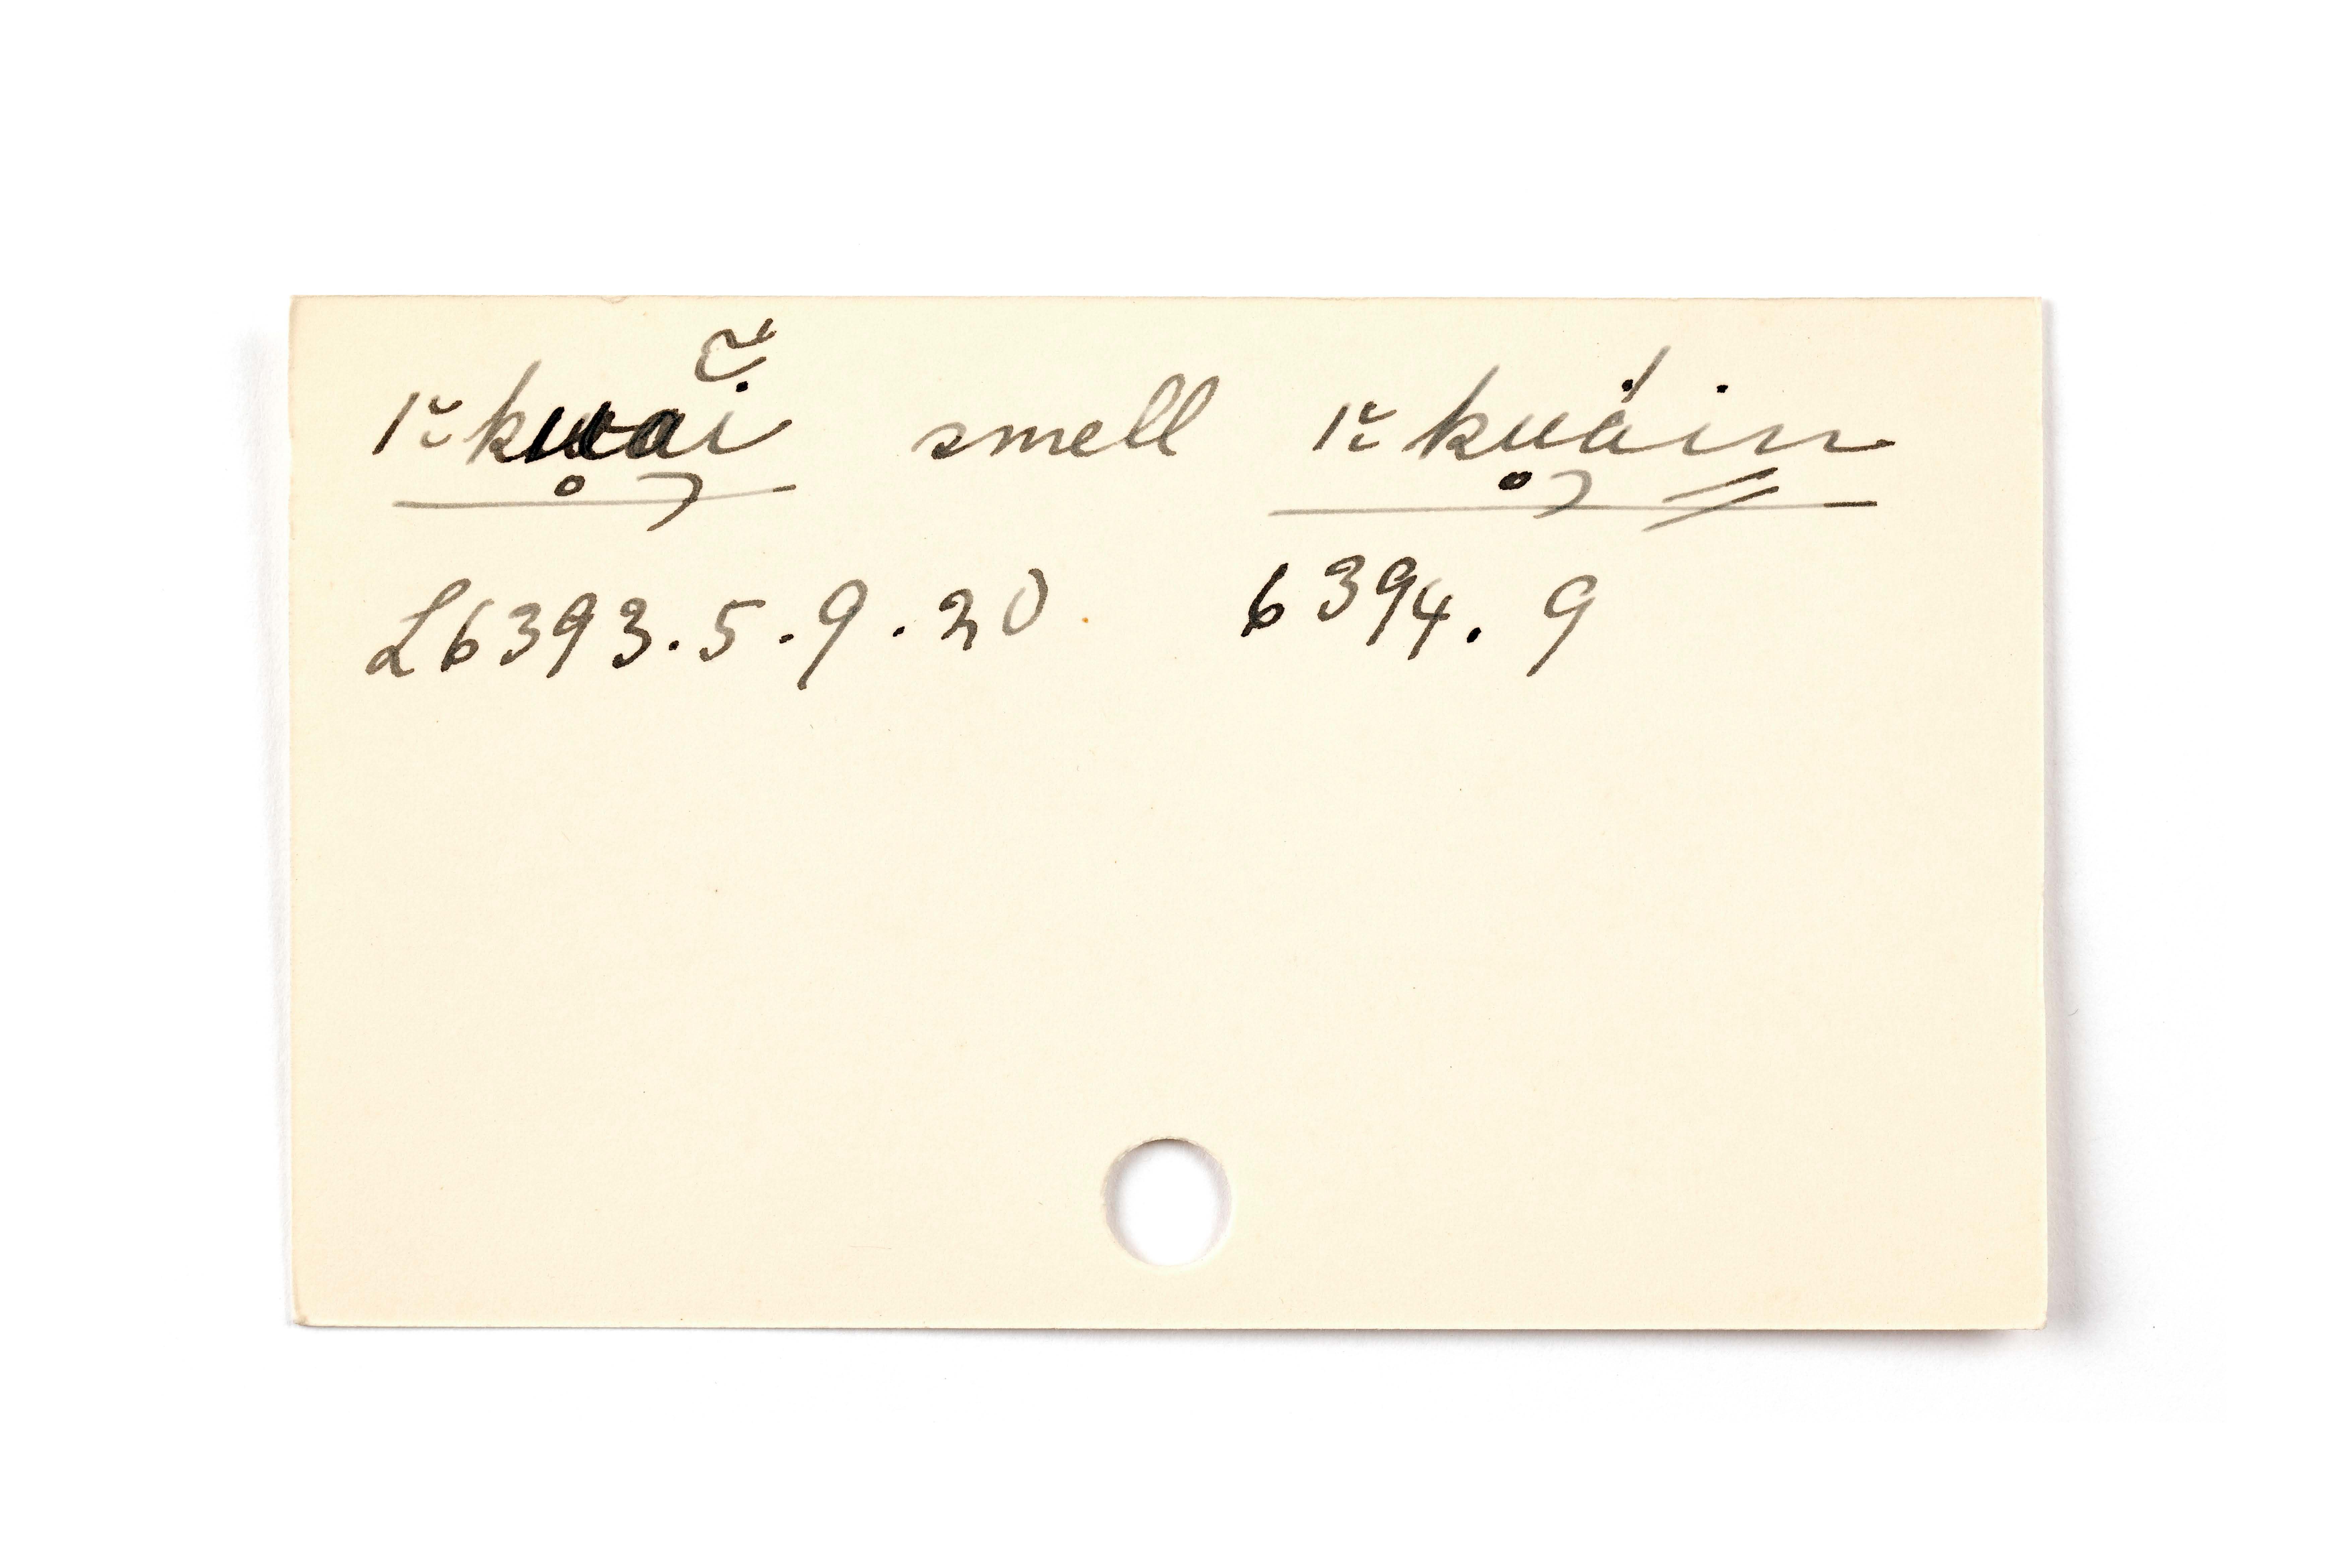 |῀ku̥a̡ĩ̆ smell |῀ku̥á̡in
L6393.5.9.20. 6394.9